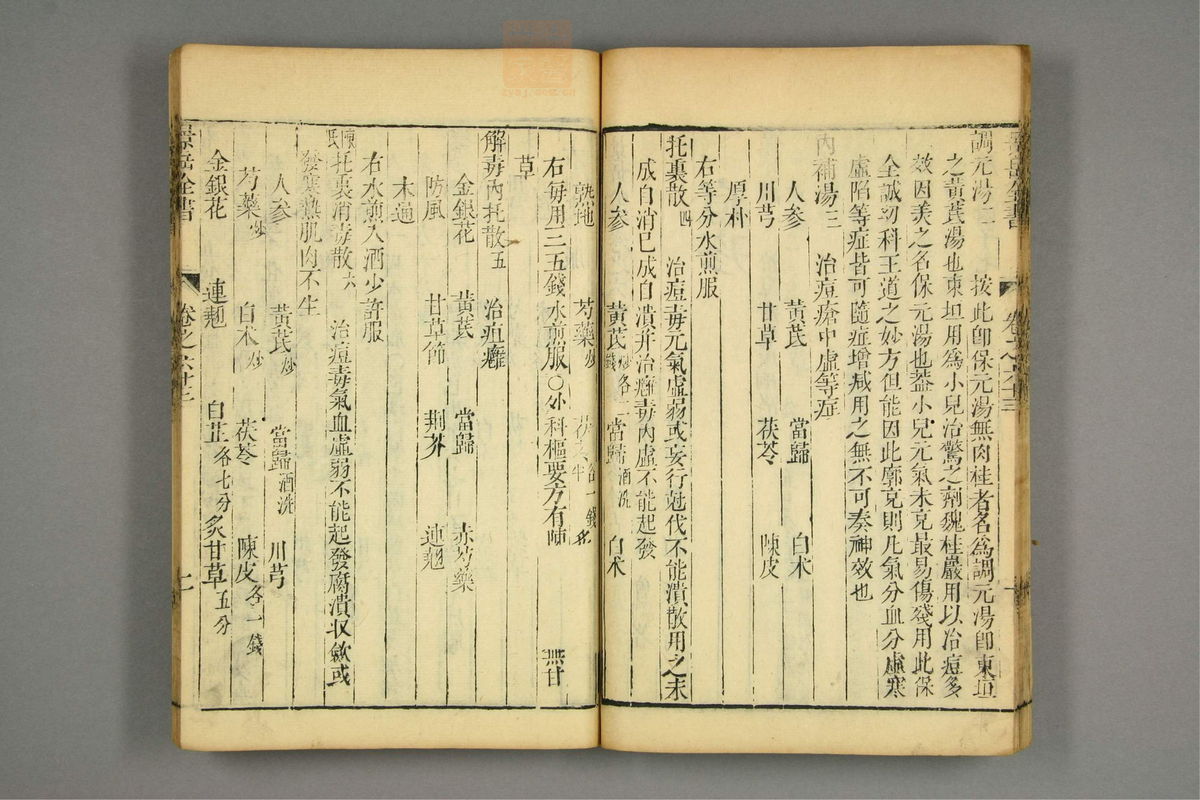 調元湯二　按此卽保元湯無肉桂者名爲調元湯卽東垣
之黃芪湯也東垣用爲小兒治驚之劑魏桂巖用以治痘多
效因美之名保元湯也葢小兒元氣未充最易傷殘用此保
全誠幼科王道之妙方但能因此廓充則凡氣分血分虛寒
虛陷等症皆可隨症增減用之無不可奏神效也
內補湯三　治痘瘡中虛等症
人參　黃芪　當歸　白朮
川芎　甘草　茯苓　陳皮
厚朴
右等分水煎服
托裏散四　治痘毒元氣虛弱或妄行尅伐不能潰散用之未
成自消已成自潰幷治癰毒內虛不能起發
人參　黃芪炒各二錢　當歸酒洗　白朮
熟地　芍藥炒　茯苓各一錢半
右每用三五錢水煎服○外科樞要方有陳　無甘
草
解毒內托散五　治疽癰
金銀花　黃芪　當歸　赤芍藥
防風　甘草節　荆芥　連翹
木通
右水煎入酒少許服
陳氏托裏消毒散六　治痘毒氣血虛弱不能起發腐潰收斂或
發寒熱肌肉不生
人參　黃芪炒　當歸酒洗　川芎
芍藥炒　白朮炒　茯苓　陳皮各一錢
金銀花　連翹　白芷各七分　炙甘草五分
景岳全書　卷之六十三　二